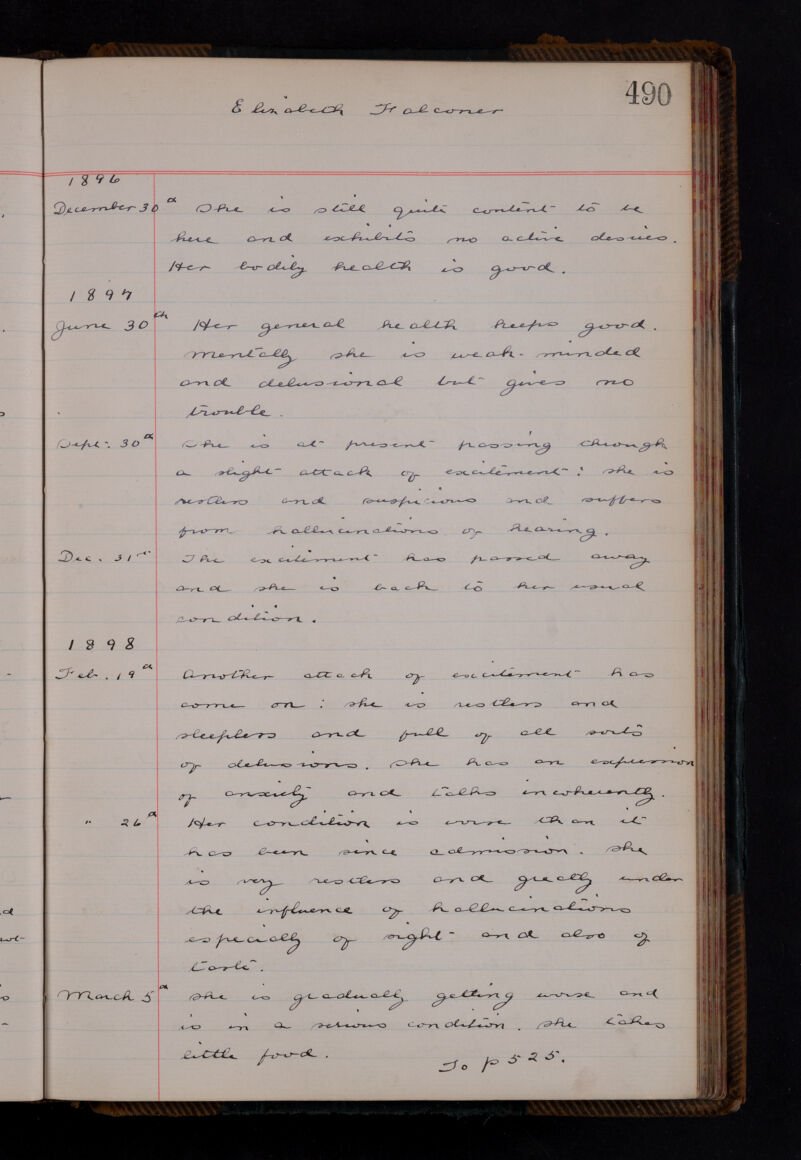 490
Elizabeth Falconer
1896
December 30th She is still quite content to be
here and exhibits no active desires.
Her bodily health is good.
1897
June 30th Her general health keeps good.
Mentally she is weak-minded
and delusional but gives no
trouble.
Sept. 30th She is at present passing through
a slight attack of excitement: she is
restless and suspicious and suffers
from hallucinations of hearing.
Dec. 31st The excitement has passed away
and she is back to her usual
condition.
1898
Feb. 19th Another attack of excitement has
come on: she is restless and
sleepless and full of all sorts
of delusions. She has an expression
of anxiety and talks incoherently.
" 26th Her condition is worse than it
has been since admission. She
is very restless and greatly under
the influence of hallucinations
especially of sight and also of
taste.
March 5th She is gradually getting worse and
is in a serious condition. She takes
little food.
To p 525.